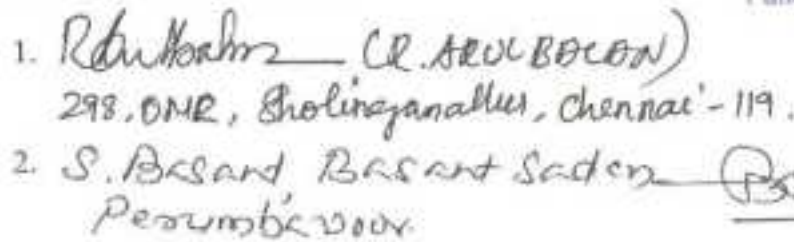 1. (R. ARUL BOCEN)
298, OMR, Sholinganallur, Chennai - 119.
2. S. Basant Basant Saden
Perumbavoor